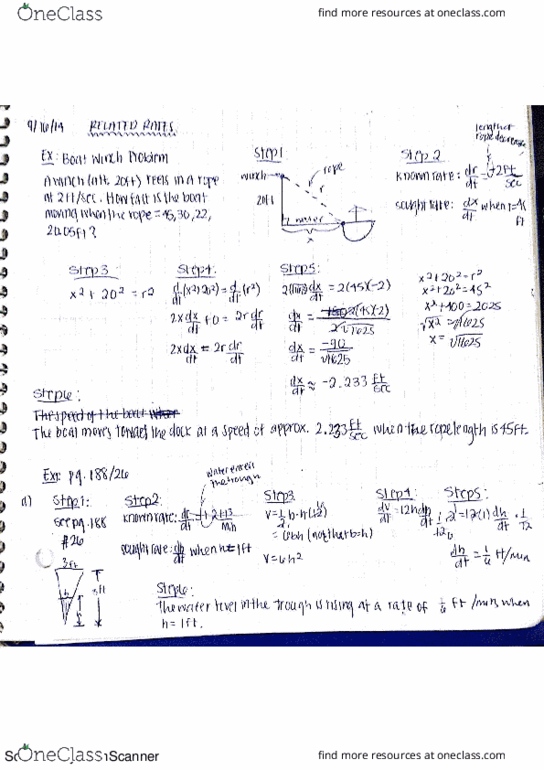 OneClass
find more resources at oneclass.com
9/16/14 RELATED RATES
Ex: Boat Winch Problem
A winch (alt. 20ft) reels in a rope
at 2ft/sec. How fast is the boat
moving when the rope = 45, 30, 22,
20.05ft?
Step 1
winch
rope
r
20ft
water
x
length of
rope decrease
Step 2
known rate: dr/dt = -2 ft/sec
sought rate: dx/dt when r=45 ft
Step 3
x² + 20² = r²
Step 4:
d/dt (x²+20²) = d/dt (r²)
2x dx/dt + 0 = 2r dr/dt
2x dx/dt = 2r dr/dt
Step 5:
dx/dt = 2(45)(-2)
dx/dt = 2(45)(-2) / 2√1625
dx/dt = -90 / √1625
dx/dt ≈ -2.233 ft/sec
x² + 20² = r²
x² + 20² = 45²
x² + 400 = 2025
√x² = √1625
x = √1625
Step 6:
The speed of the boat
The boat moves towards the dock at a speed of approx. 2.233 ft/sec when the rope length is 45ft.
Ex: pg. 188/26
a)
Step 1:
see pg. 188
#26
3ft
h
Step 2:
water enters
the trough
known rate:
sought rate: dh/dt when h=1ft
Step 3
V = ½ b·h(12)
= 6bh (note that b=h)
V = 6h²
Step 4:
dV/dt = 12h dh/dt
Step 5:
2 = 12(1) dh/dt · 1/12
dh/dt = 1/6 ft/min
Step 6:
The water level in the trough is rising at a rate of 1/6 ft/min, when
h = 1ft.
OneClass
Scanner
find more resources at oneclass.com